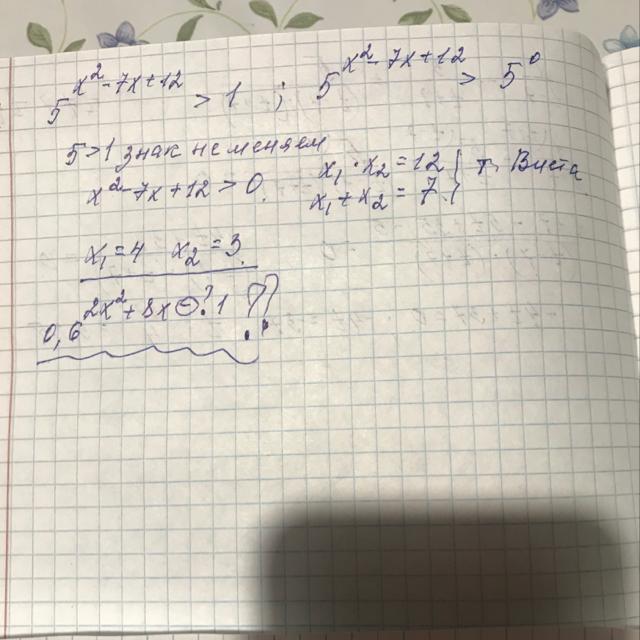 5^{x²-7x+12} > 1 ; 5^{x²-7x+12} > 5⁰
5>1 знак не меняем
x²-7x+12>0. x₁·x₂=12 } т. Виета
x₁+x₂=7. }
x₁=4 x₂=3.
0,6^{2x²+8x} ⊖? 1 ??